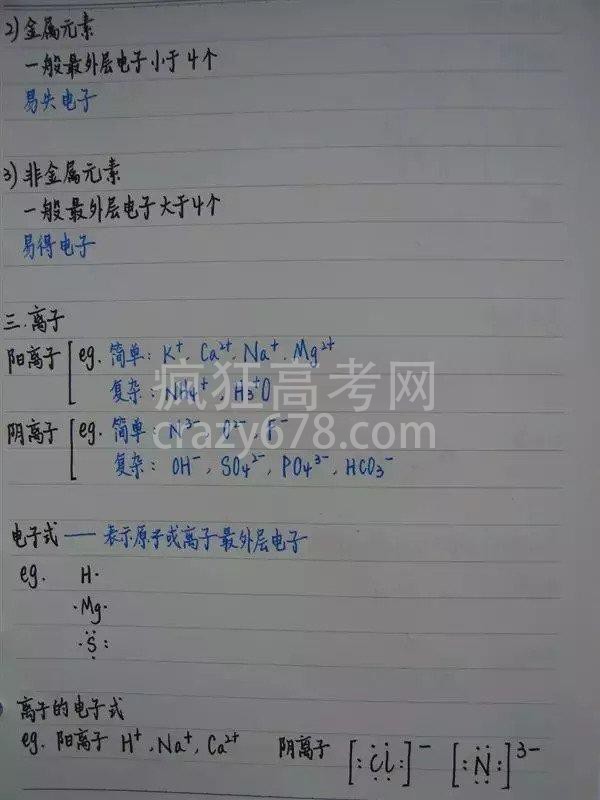 2) 金属元素
一般最外层电子小于4个
易失电子
3) 非金属元素
一般最外层电子大于4个
易得电子
三.离子
阳离子 eg. 简单: K⁺, Ca²⁺, Na⁺, Mg²⁺
复杂: NH₄⁺, H₃⁺O
疯狂高考网
阴离子 eg. 简单: N³⁻, O²⁻, F⁻
crazy678.com
复杂: OH⁻, SO₄²⁻, PO₄³⁻, HCO₃⁻
电子式 —— 表示原子或离子最外层电子
eg. H·
·Mg·
·S:
离子的电子式
eg. 阳离子 H⁺, Na⁺, Ca²⁺ 阴离子 [:Cl:]⁻ [:N:]³⁻